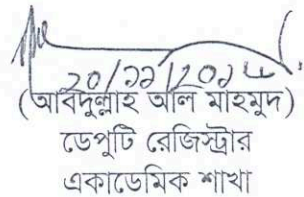 ২০/১১/২০১৮
(আবদুল্লাহ আল মাহমুদ)
ডেপুটি রেজিস্ট্রার
একাডেমিক শাখা